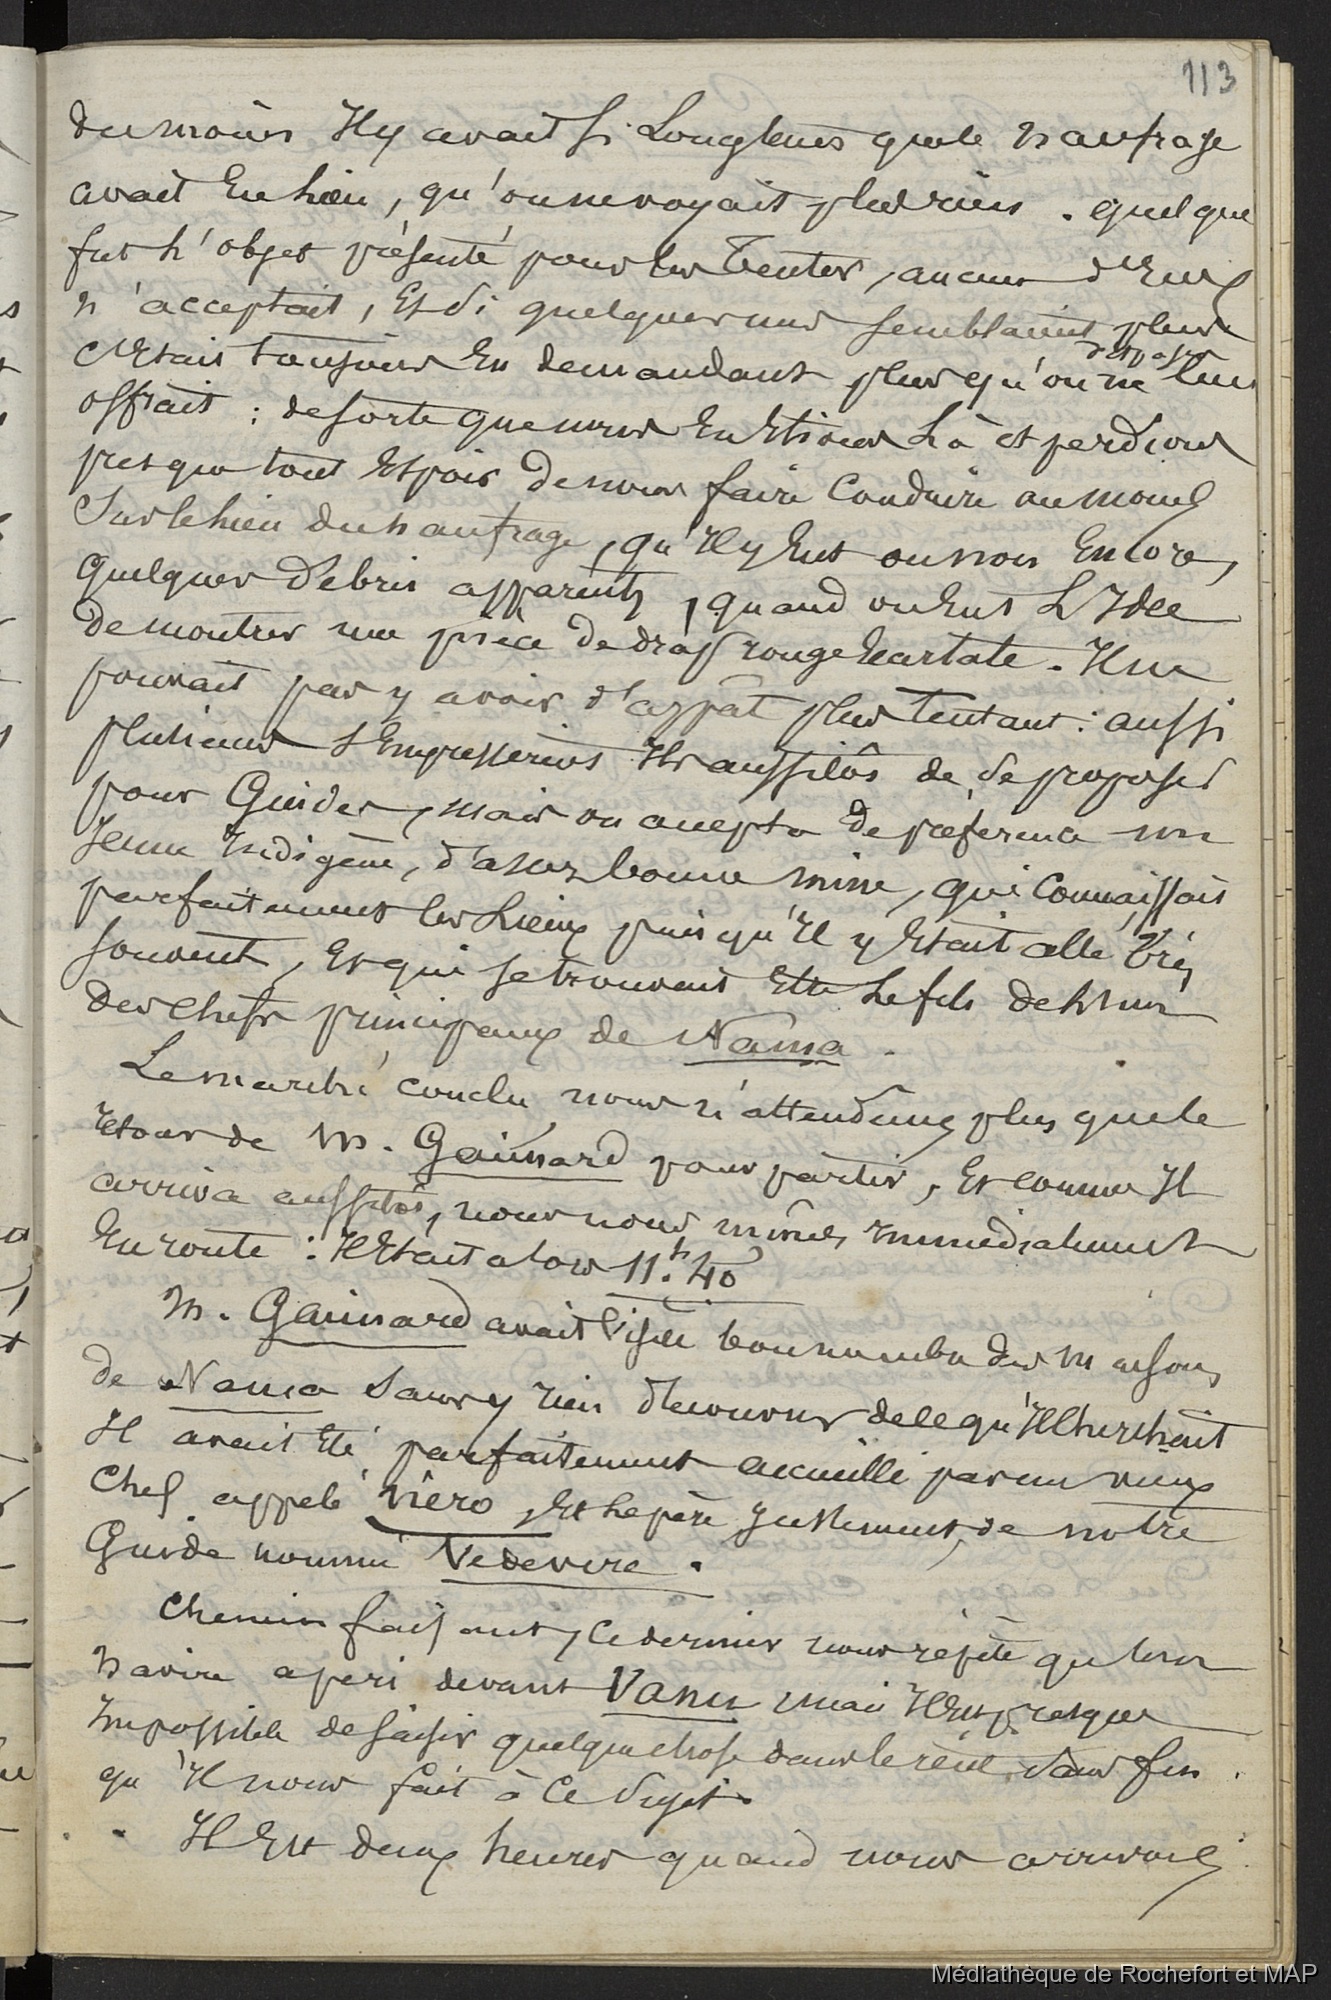 113
du moins Il y avait si Longtems que le naufrage
avait Eu Lieu, qu'on ne voyait plus rien . quelque
fut L'objet présenté pour les Tenter, aucun d'Eux
n'acceptait, Et si quelques uns semblaient plus
c'Etait toujours En demandant plus qu'on ne leur
offrait : de sorte que nous En Etions Là et perdions
presque tout Espoir de nous faire Conduire au moins
Sur le Lieu du naufrage, qu'Il y Eut ou non Encore,
quelques débris apparents, quand on Eut L'Idée
de montrer une pièce de drap rouge Ecarlate. Il ne
pouvait pas y avoir d'appât plus tentant : aussi
plusieurs s'Empressèrent Ils aussitôt de se proposer
pour Guides, mais on accepta de préférence un
Jeune Indigène, d'assez bonne mine, qui Connaissait
parfaitement les Lieux puis qu'Il y Etait allé très
souvent, Et qui se trouvait Etre Le fils de L'un
des Chefs principaux de Nama .
Le marché conclu nous n'attendimes plus que le
retour de M. Gaimard pour partir, Et comme Il
arriva aussitôt, nous nous mîmes Immédiatement
En route : Il Etait alors 11.h 40
M. Gaimard avait Visité bon nombre des maisons
de Nama sans y rien découvrir de ce qu'Il Cherchait
Il avait Eté parfaitement accueilli par un vieux
Chef appelé Viero, Et Le père Justement, de notre
Guide nommé Vedevere .
Chemin faisant, Ce dernier nous répète qu'un
navire a péri devant Vanu mais Il Est presque
Impossible de saisir quelque chose dans le récit sans fin
qu'Il nous fait à Ce sujet.
Il Est deux heures quand nous arrivons
Médiathèque de Rochefort et MAP